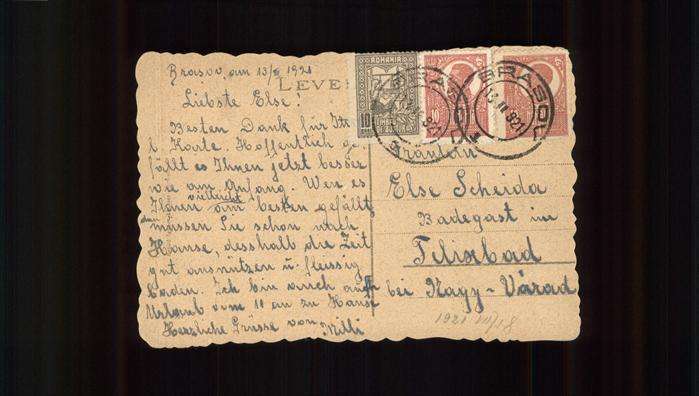 Brasov, am 13/III 1921
LEVE
Liebste Else!
Besten Dank für Ihr
l. Karte. Hoffentlich ge
fällt es Ihnen jetzt besser
wie am Anfang. Wen es
vielleicht
Ihnen am besten gefällt
müssen Sie schon nach
Hause, desshalb die Zeit
gut ausnützen u. fleissig
baden. Ich bin auch auf
Urlaub vom 10 an zu Hause
Herzliche Grüsse von Milli
ROMANIA
10
BRASOV
BRASOV
13 III 921
Fräulein
Else Scheida
Badegast in
Felixbad
bei Nagy-Várad